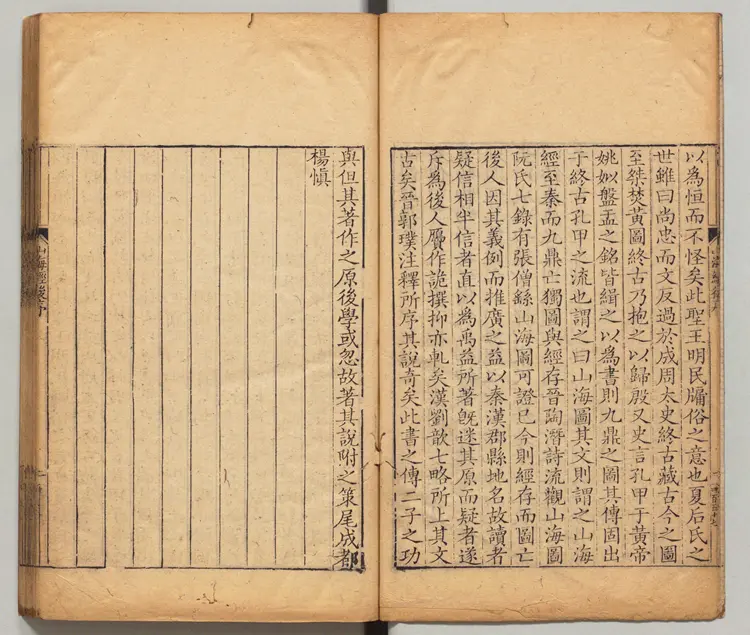 以為恒而不怪矣此聖王明民牖俗之意也夏后氏之
世雖曰尚忠而文反過於成周太史終古藏古今之圖
至桀焚黃圖終古乃抱之以歸殷又史言孔甲于黃帝
姚姒盤盂之銘皆緝之以為書則九鼎之圖其傳固出
于終古孔甲之流也謂之曰山海圖其文則謂之山海
經至秦而九鼎亡獨圖與經存晉陶潛詩流觀山海圖
阮氏七錄有張僧繇山海圖可證已今則經存而圖亡
後人因其義例而推廣之益以秦漢郡縣地名故讀者
疑信相半信者直以為禹益所著既迷其原而疑者遂
斥為後人贗作詭撰抑亦軋矣漢劉歆七略所上其文
古矣晉郭璞注釋所序其說奇矣此書之傳二子之功
與但其著作之原後學或忽故著其說附之策尾成都
楊慎
山海經後序